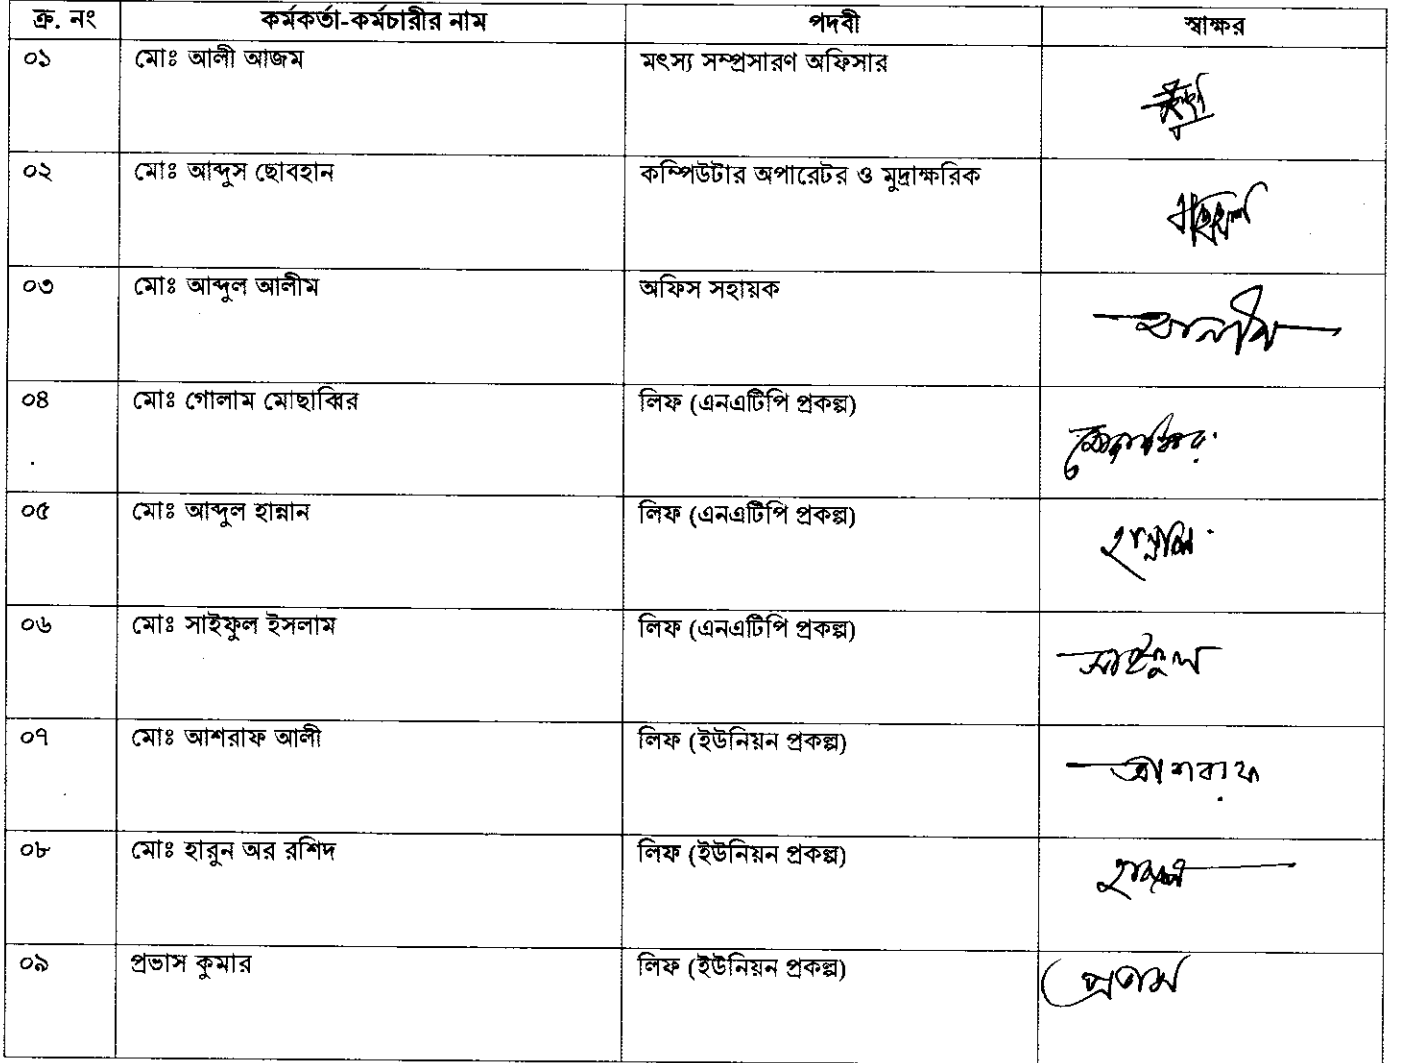 ক্র. নং কর্মকর্তা-কর্মচারীর নাম পদবী স্বাক্ষর
০১ মোঃ আলী আজম মৎস্য সম্প্রসারণ অফিসার
০২ মোঃ আব্দুস ছোবহান কম্পিউটার অপারেটর ও মুদ্রাক্ষরিক
০৩ মোঃ আব্দুল আলীম অফিস সহায়ক আলীম
০৪ মোঃ গোলাম মোছাব্বির লিফ (এনএটিপি প্রকল্প)
০৫ মোঃ আব্দুল হান্নান লিফ (এনএটিপি প্রকল্প) হান্নান
০৬ মোঃ সাইফুল ইসলাম লিফ (এনএটিপি প্রকল্প) সাইফুল
০৭ মোঃ আশরাফ আলী লিফ (ইউনিয়ন প্রকল্প) আশরাফ
০৮ মোঃ হারুন অর রশিদ লিফ (ইউনিয়ন প্রকল্প)
০৯ প্রভাস কুমার লিফ (ইউনিয়ন প্রকল্প) প্রভাস